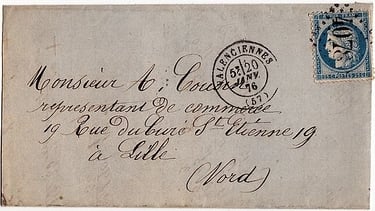 VALENCIENNES
5E 20
JANV.
76
(57)
Monsieur A,
représentant de commerce
19 Rue du Curé St Etienne 19
à Lille
(Nord)